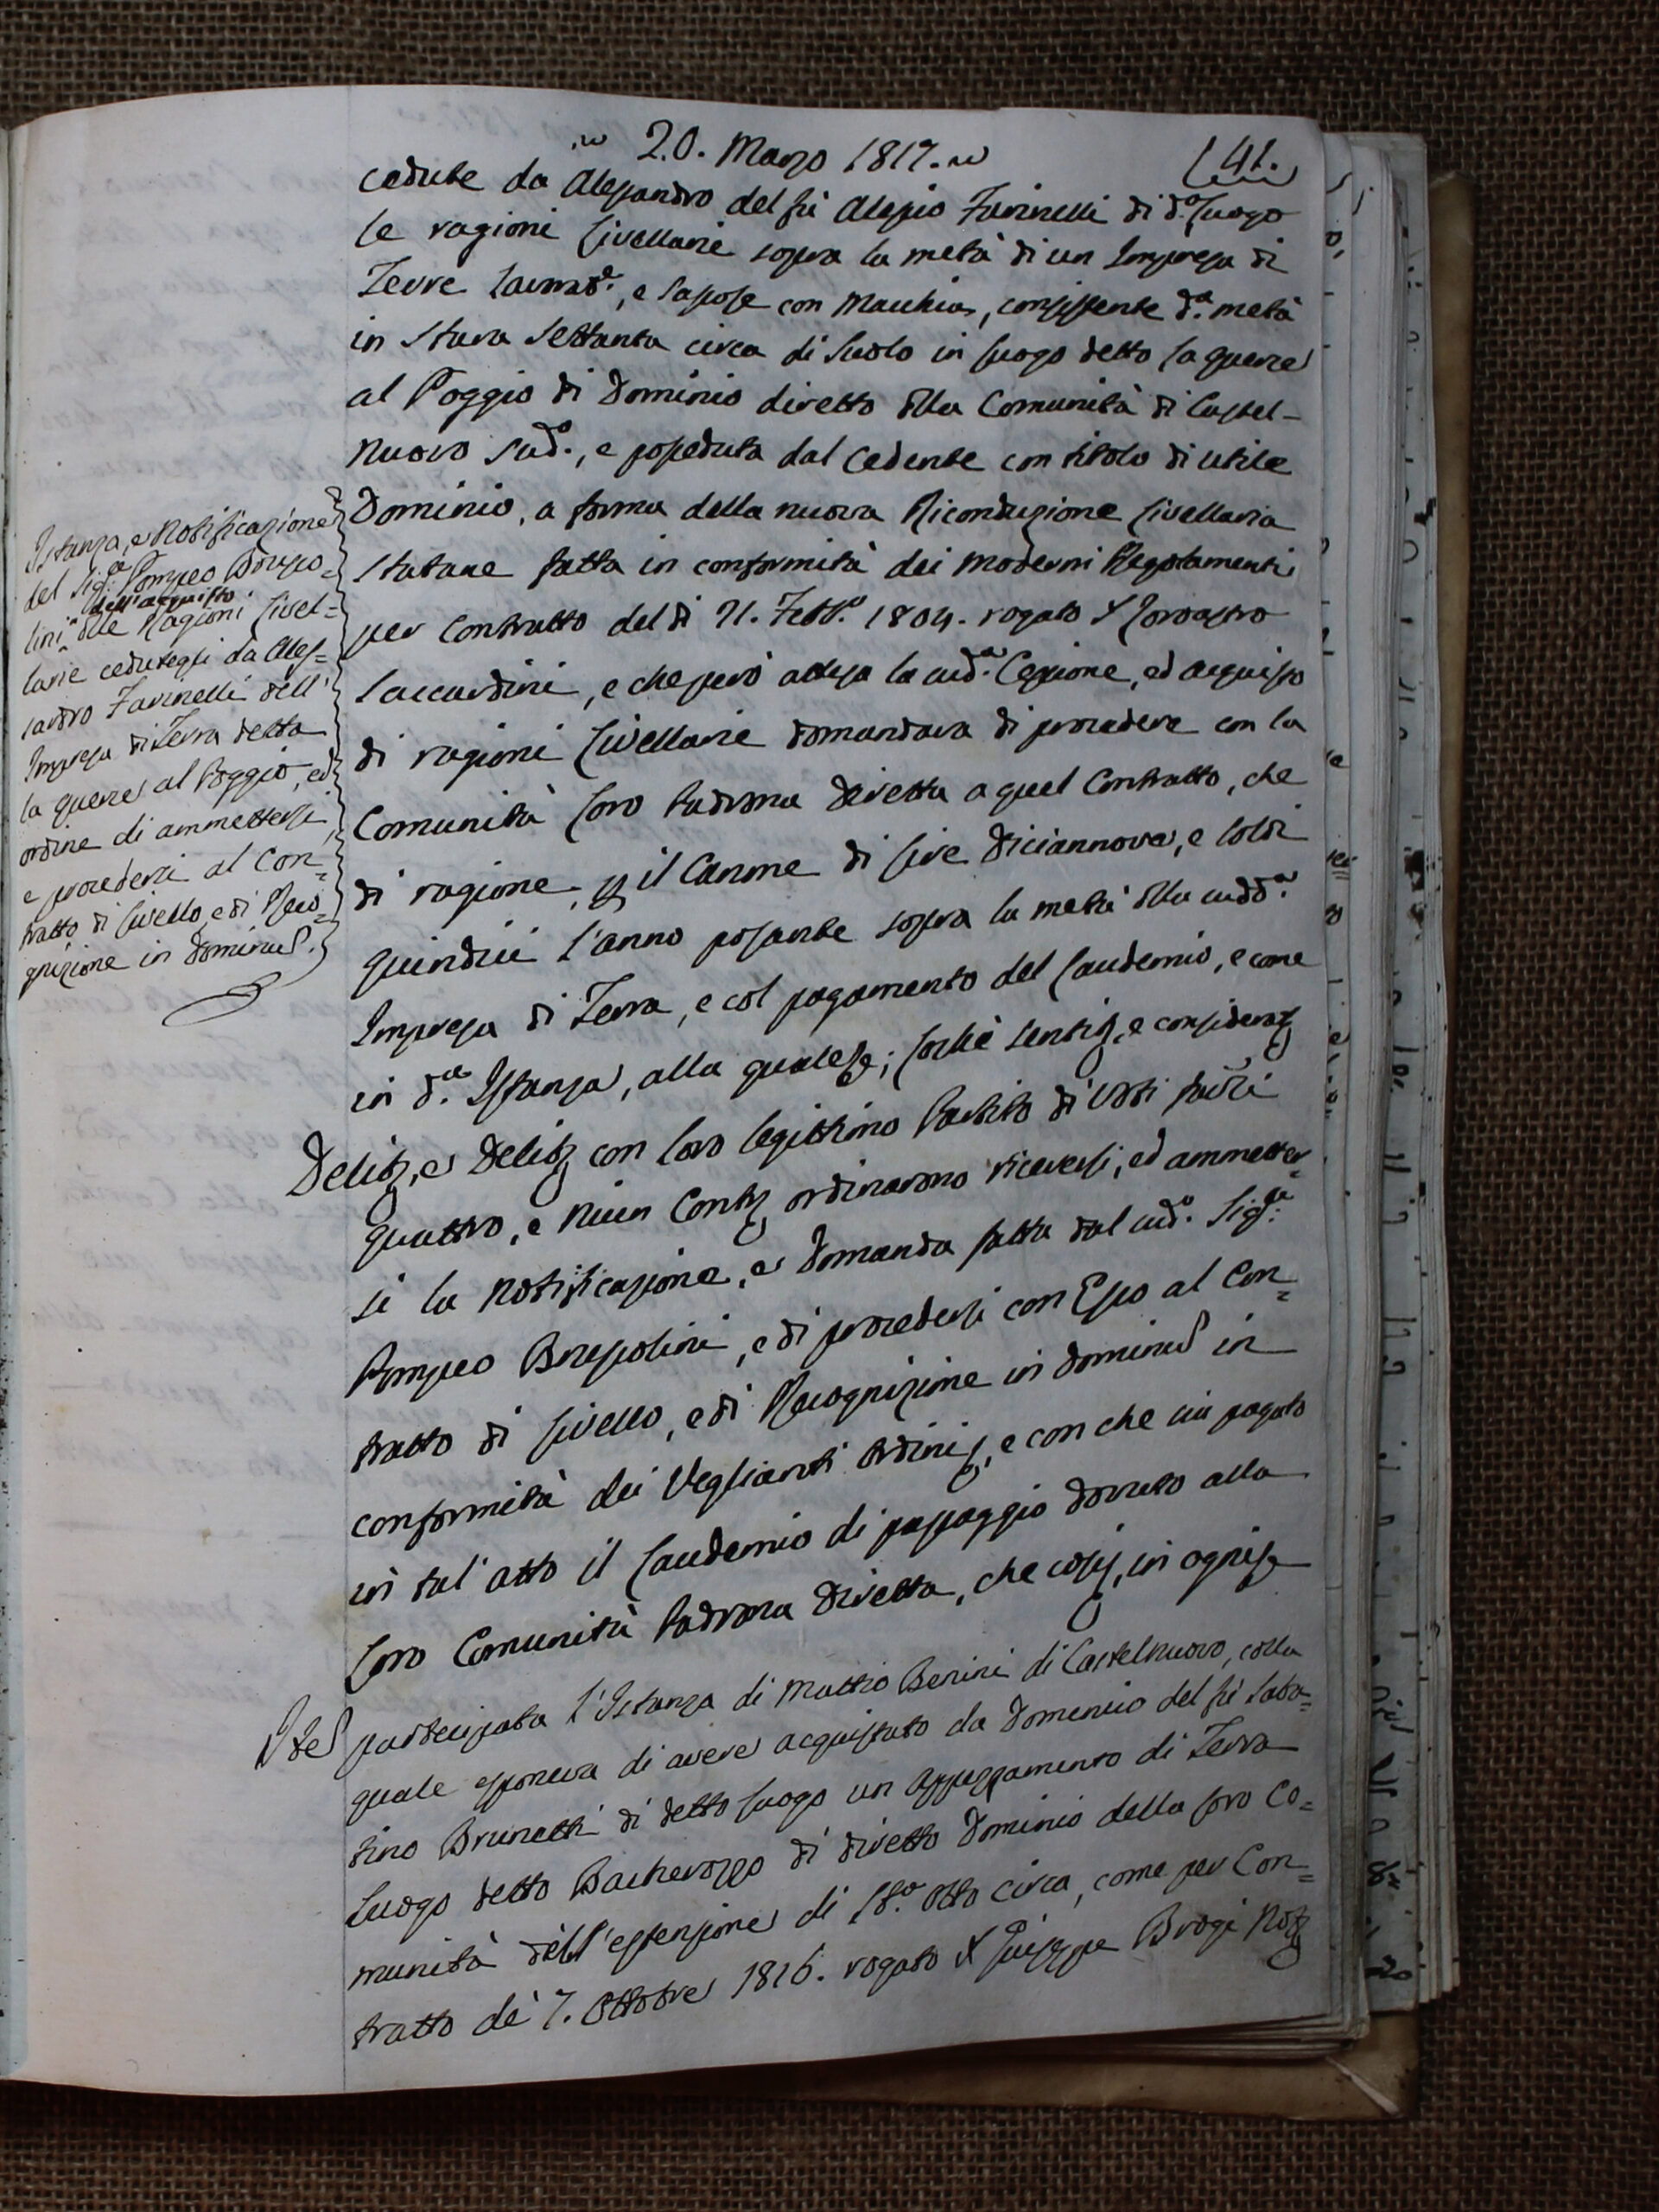 20. Marzo 1817.
141.
cedute da Alessandro del fù Alessio Farinelli di d.º Luogo
le ragioni Livellarie sopra la metà di un Impresa di
Terre Lavorat.e, e Sassose con Macchia, consistente d.ª metà
in Stara Settanta circa di Suolo in luogo detto la querce
al Poggio di Dominio diretto della Comunità di Castel-
nuovo Sud.º, e posseduta dal Cedente con titolo di utile
Dominio, a forma della nuova Riconduzione Livellaria
Statane fatta in conformità dei moderni Regolamenti
per Contratto del dì 21. Febb.º 1804. rogato Zoroastro
Saccardini, e che però attesa la sud.ª Cessione, ed acquisto
di ragioni Livellarie domandava di procedere con la
Comunità loro Padrona diretta a quel Contratto, che
di ragione, p il Canone di Lire Diciannove, e Soldi
quindici l'anno posante sopra la metà della sudd.ª
Impresa di Terra, e col pagamento del Laudemio, e come
in d.ª Istanza, alla quale; lochè sentito, e considerato
Delib, e Delib con loro legittimo Partito di Voti favori
quattro, e niun Contr ordinarono riceversi, ed ammetter-
si la Notificazione, e Domanda fatta dal sud.º Sig.re
Pompeo Bruscolini, e di procedersi con Esso al Con=
tratto di Livello, e di Recognizione in Dominus in
conformità dei Veglianti Ordini, e con che sia pagato
in tal' atto il Laudemio di passaggio dovuto alla
loro Comunità Padrona Diretta, che così, in ogni
Ite partecipata l'Istanza di Mattio Benini di Castelnuovo, colla
quale esponeva di avere acquistato da Domenico del fù Saba=
tino Brunetti di detto Luogo un Appezzamento di Terra
Luogo detto Bacherozzo di diretto Dominio della loro Co=
munità dell'estensione di St.ª Otto circa, come per Con=
tratto de' 7. Ottobre 1816. rogato Giuseppe Brogi Not
Istanza, e Notificazione
del Sig.re Pompeo Brusco=
dell'acquisto
lini delle Ragioni Livel=
larie cedutegli da Ales=
sandro Farinelli dell'
Impresa di Terra detta
la querce al Poggio, ed
ordine di ammettersi,
e procedersi al Con=
tratto di Livello, e di Reco=
gnizione in Dominus.